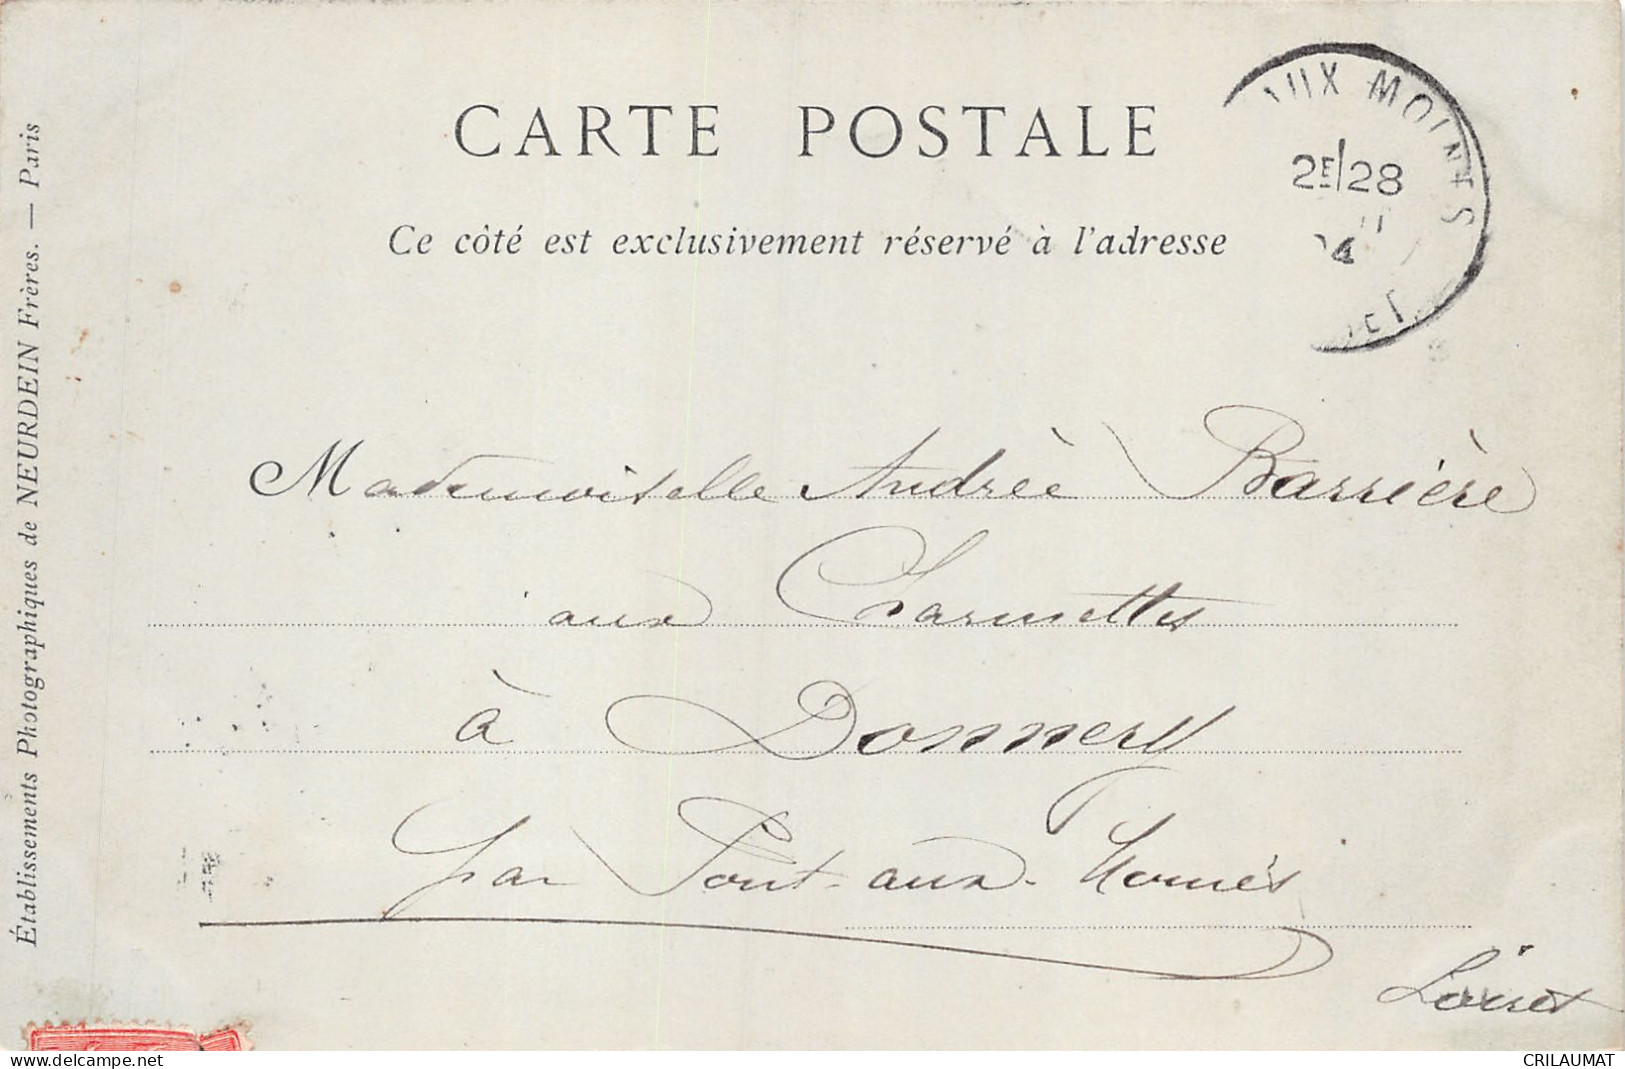 CARTE POSTALE
Ce côté est exclusivement réservé à l'adresse
AUX MOINES
2E/28
4
Établissements Photographiques de NEURDEIN Frères. — Paris
Mademoiselle Andrèè Barrière
aux Charmettes
à Donnery
par Pont-aux-Moines
Loiret
delcampe.net
CRILAUMAT